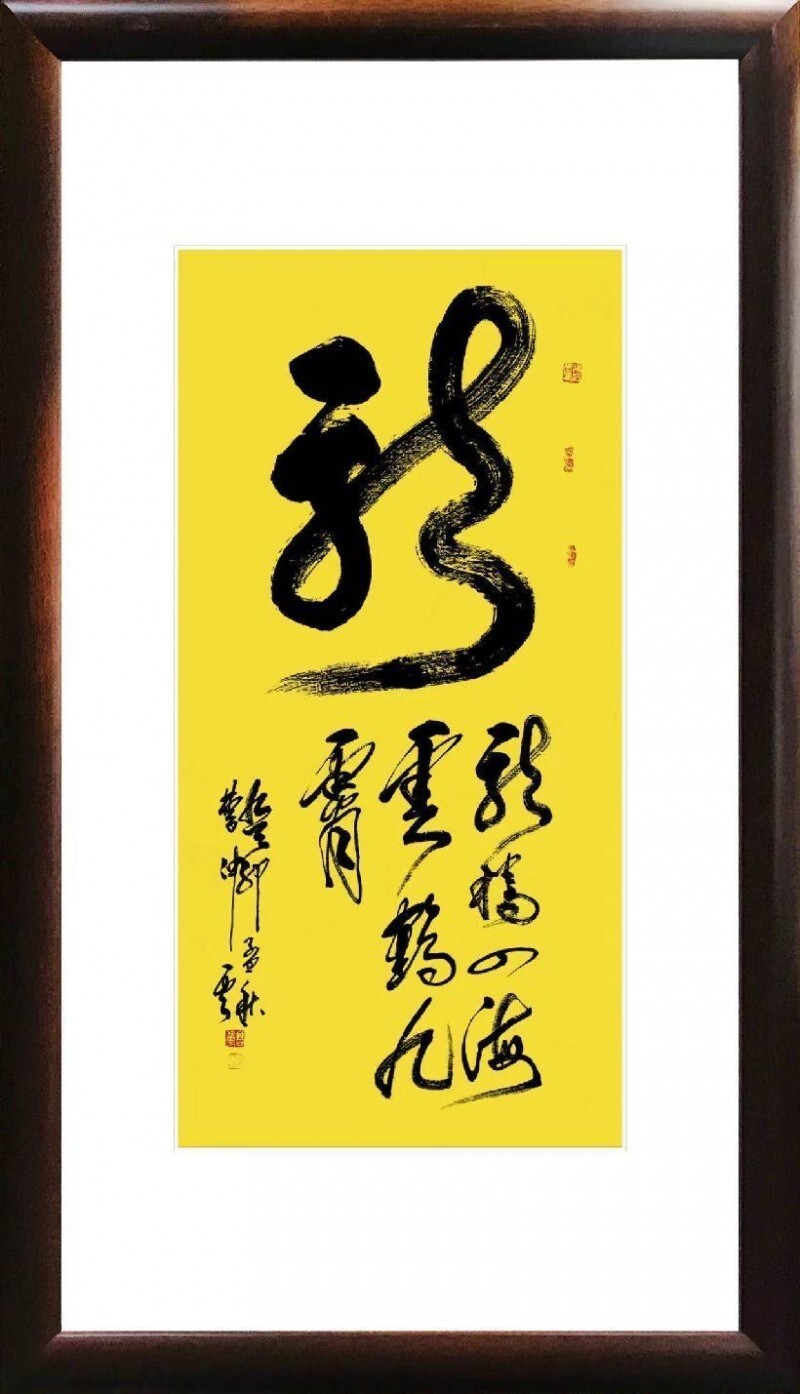 龍
龍騰四海
雲鶴九
霄
孟秋